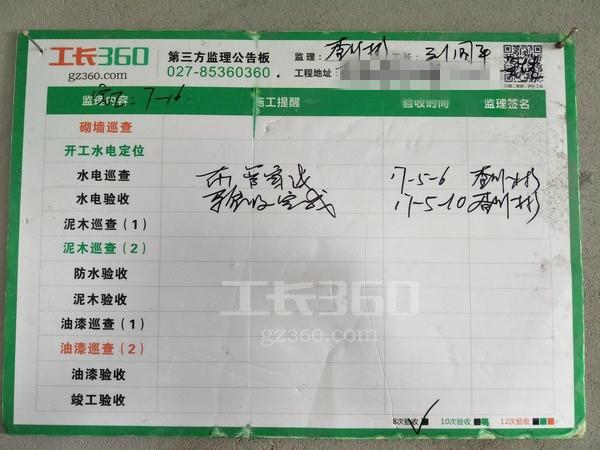 工长360
gz360.com
第三方监理公告板
027-85360360
监理：
工长：
工程地址：
监理内容 施工提醒 验收时间 监理签名
7-16.
砌墙巡查
开工水电定位
水电巡查 17-5-6
水电验收 验收完成 17-5-10
泥木巡查（1）
泥木巡查（2）
防水验收
泥木验收
油漆巡查（1）
油漆巡查（2）
油漆验收
竣工验收
工长360
gz360.com
8次验收 10次验收 12次验收